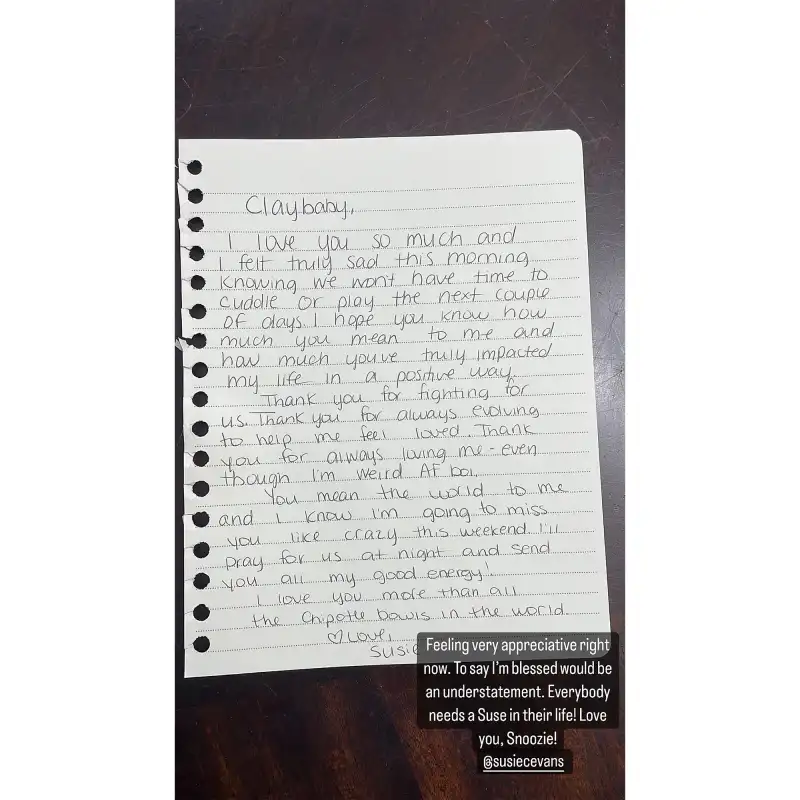 Claybaby,
I love you so much and
I felt truly sad this morning
knowing we won't have time to
cuddle or play the next couple
of days. I hope you know how
much you mean to me and
how much you've truly impacted
my life in a positive way.
Thank you for fighting for
us. Thank you for always evolving
to help me feel loved. Thank
you for always loving me - even
though I'm weird AF boi.
You mean the world to me
and I know I'm going to miss
you like crazy this weekend. I'll
pray for us at night and send
you all my good energy!
I love you more than all
the Chipotle bowls in the world
♡ Love,
Susie
Feeling very appreciative right
now. To say I'm blessed would be
an understatement. Everybody
needs a Suse in their life! Love
you, Snoozie!
@susiecevans